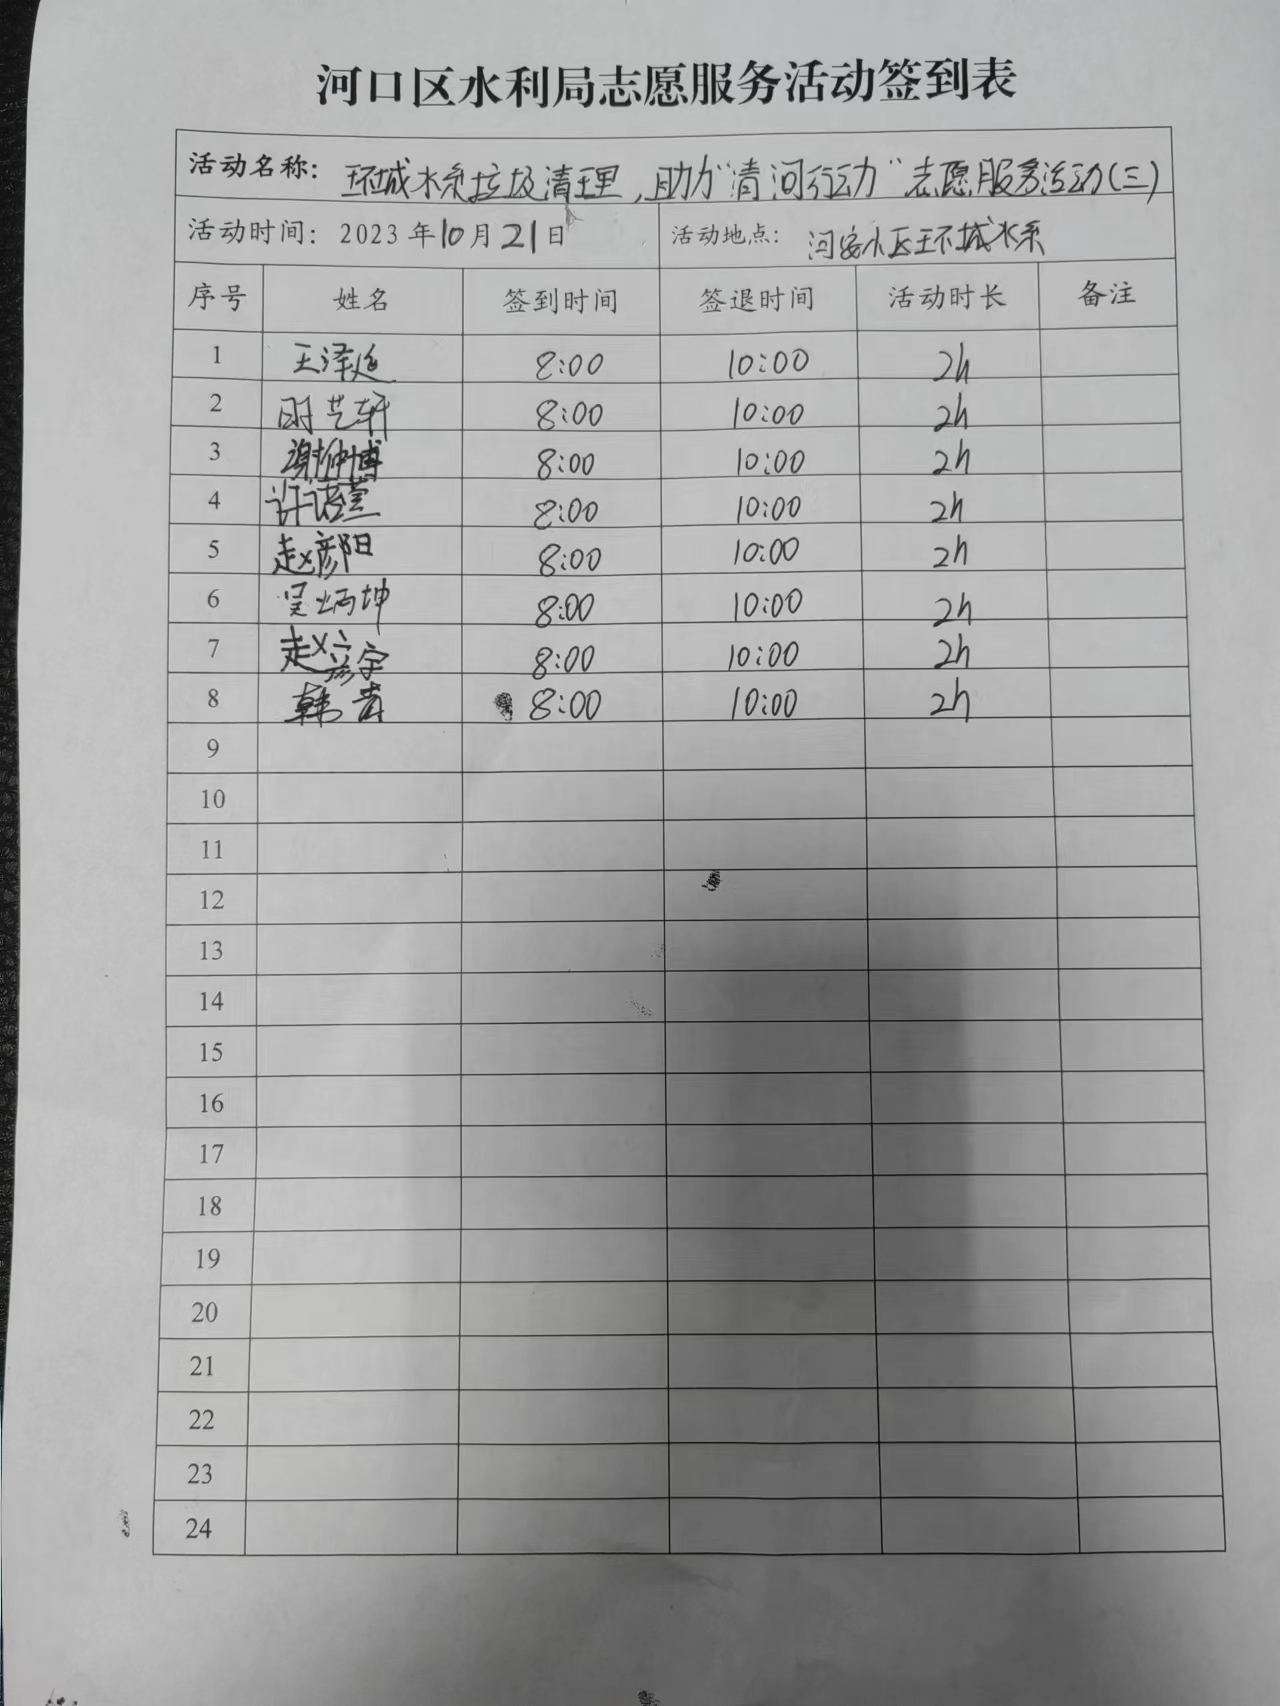 河口区水利局志愿服务活动签到表
活动名称：环城水系垃圾清理，助力“清河行动”志愿服务活动(三)
活动时间：2023年10月21日 活动地点：河安小区环城水系
序号 姓名 签到时间 签退时间 活动时长 备注
1 王泽延 8:00 10:00 2h
2 时艺轩 8:00 10:00 2h
3 谢坤博 8:00 10:00 2h
4 许诺萱 8:00 10:00 2h
5 赵彦阳 8:00 10:00 2h
6 吴炳坤 8:00 10:00 2h
7 赵彦宇 8:00 10:00 2h
8 韩 8:00 10:00 2h
9
10
11
12
13
14
15
16
17
18
19
20
21
22
23
24